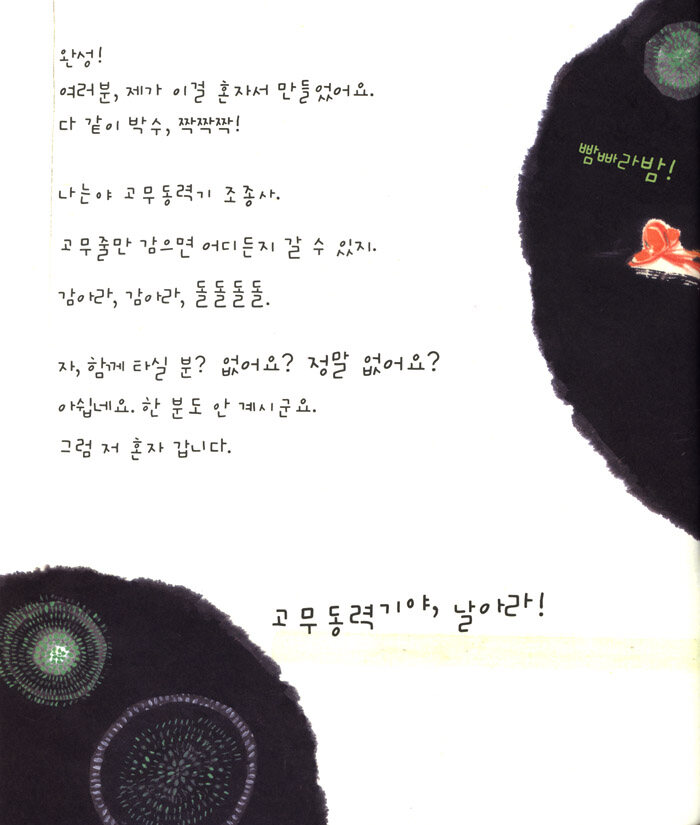 완성!
여러분, 제가 이걸 혼자서 만들었어요.
다 같이 박수, 짝짝짝!
빰빠라밤!
나는야 고무동력기 조종사.
고무줄만 감으면 어디든지 갈 수 있지.
감아라, 감아라, 돌돌돌돌.
자, 함께 타실 분? 없어요? 정말 없어요?
아쉽네요. 한 분도 안 계시군요.
그럼 저 혼자 갑니다.
고무동력기야, 날아라!